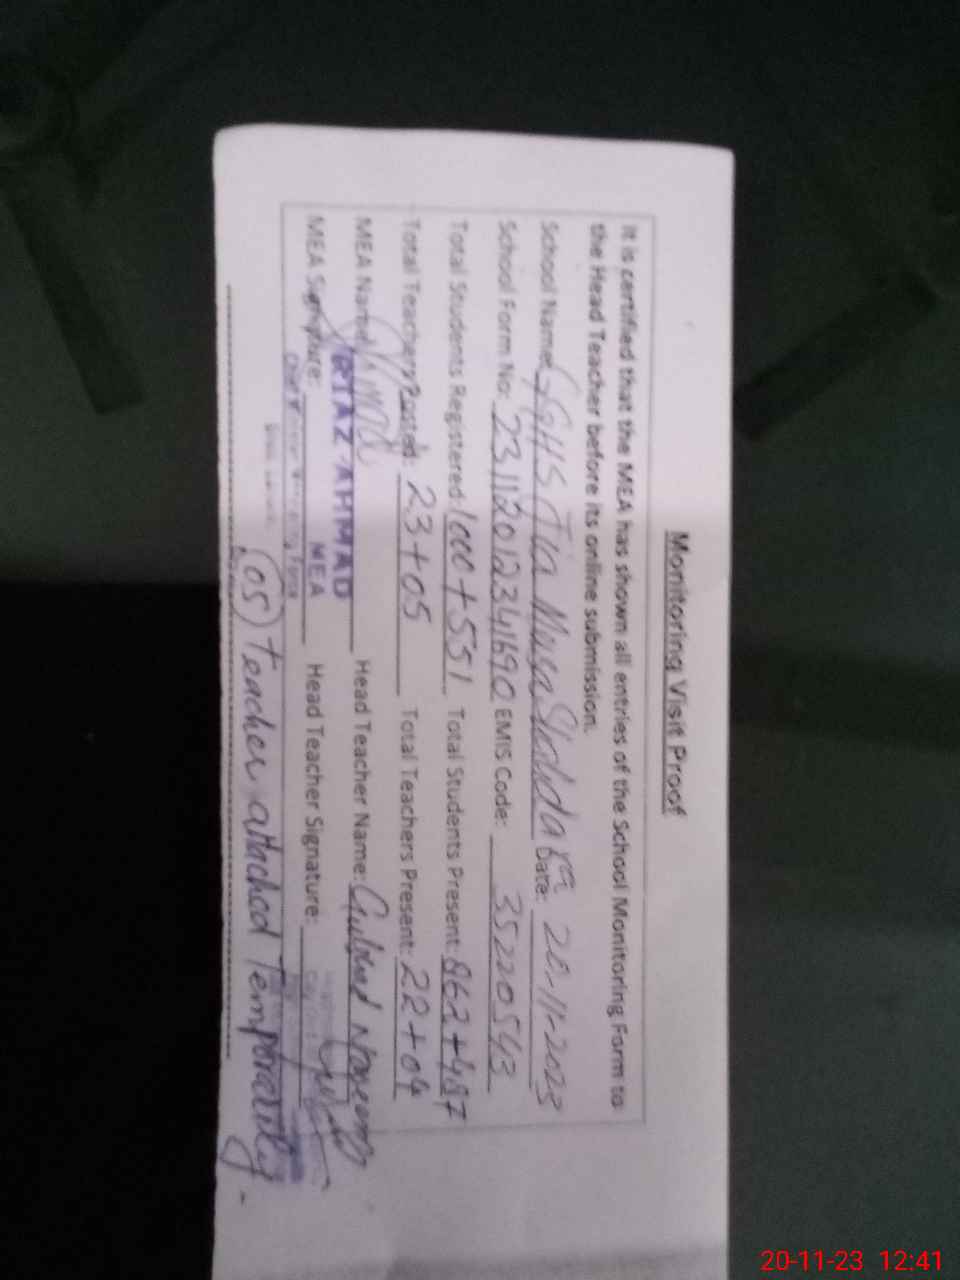 Monitoring Visit Proof
It is certified that the MEA has shown all entries of the School Monitoring Form to
the Head Teacher before its online submission.
School Name: GGHS Date: 20-11-2023
School Form No: 231120123411690 EMIS Code: 35220543
Total Students Registered: 1000+551 Total Students Present: 862+487
Total Teachers Posted: 23+05 Total Teachers Present: 22+04
MEA Name: RIAZ AHMAD Head Teacher Name:
MEA
MEA Signature: Head Teacher Signature:
(05) teacher attached Temporarily.
20-11-23 12:41